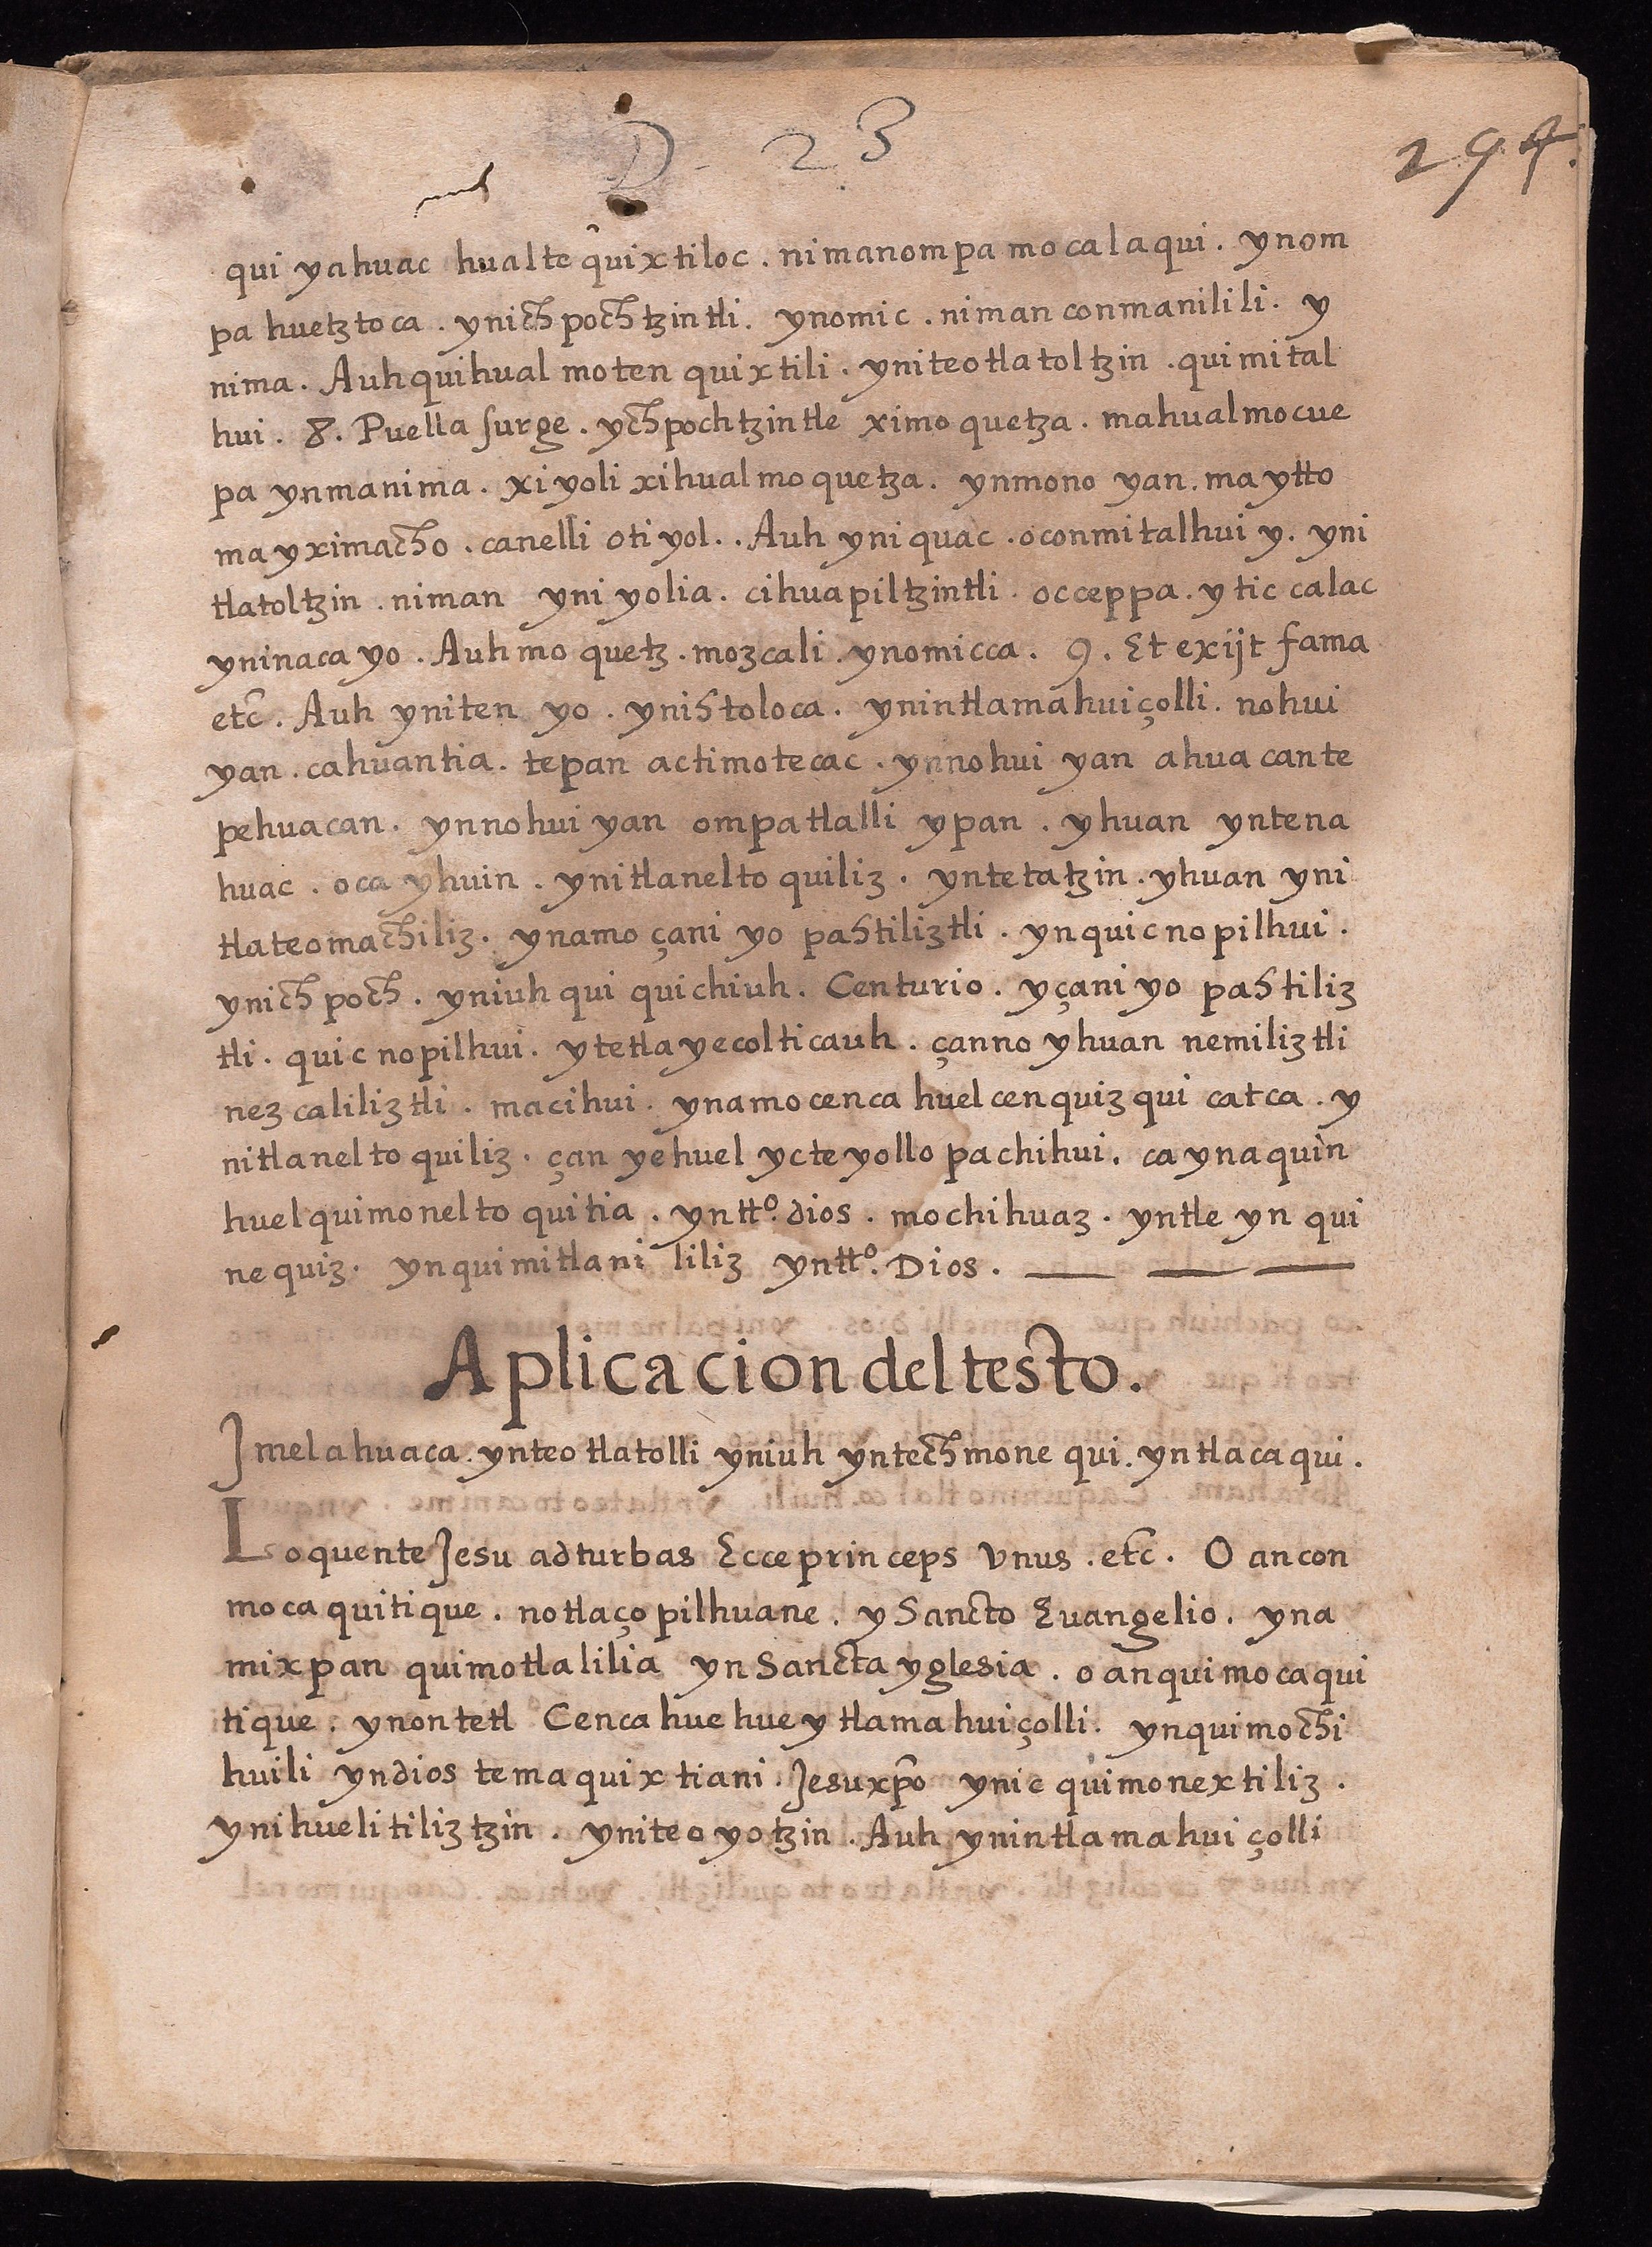 D. 23
294.
qui yahuac hualtequixtiloc. nimanompa mocalaqui. ynom
pa huetztoca. ynichpochtzintli. ynomic. niman conmanilili. y
nima. Auhquihual motenquixtili. yniteotlatoltzin. quimital
hui. 8. Puella surge. ychpochtzintle ximoquetza. mahualmocue
pa ynmanima. xiyoli xihualmoquetza. ynmono yan. maytto
mayximacho. canelli otiyol.. Auh yniquac. oconmitalhui y. yni
tlatoltzin. niman yniyolia. cihuapiltzintli. occeppa. ytic calac
yninacayo. Auhmoquetz. mozcali. ynomicca. 9. Et exijt fama
etc̄. Auh yniten yo. ynistoloca. ynintlamahuiçolli. nohui
yan. cahuantia. tepan actimotecac. ynnohui yan ahuacante
pehuacan. ynnohuiyan ompatlalli ypan. yhuan yntena
huac. oca yhuin. ynitlaneltoquiliz. yntetatzin. yhuan yni
tlateomachiliz. ynamo çaniyo pastiliztli. ynquicnopilhui.
ynichpoch. yniuhqui quichiuh. Centurio. yçaniyo pastiliz
tli. quicnopilhui. ytetlayecolticauh. çanno yhuan nemiliztli
nezcaliliztli. macihui. ynamocenca huelcenquizqui catca. y
nitlaneltoquiliz. çan yehuel ycteyollo pachihui. ca ynaquìn
huelquimoneltoquitia. yntt⁰. dios. mochihuaz. yntle yn qui
nequiz. ynquimitlani liliz yntt⁰. Dios. — — —
Aplicacion del testo.
Jmelahuaca. ynteotlatolli yniuh yntechmonequi. yntlacaqui.
Loquente Jesu adturbas Ecce princeps vnus. etc̄. O ancon
mocaquitique. notlaçopilhuane. y Sancto Euangelio. yna
mixpan quimotlalilia yn Sancta yglesia. o anquimocaqui
tique. ynontetl Cenca huehuey tlamahuiçolli. ynquimochi
huili yndios temaquixtiani. Jesuxp̄o ynic quimonextiliz.
ynihuelitiliztzin. yniteoyotzin. Auh ynintlamahuiçolli